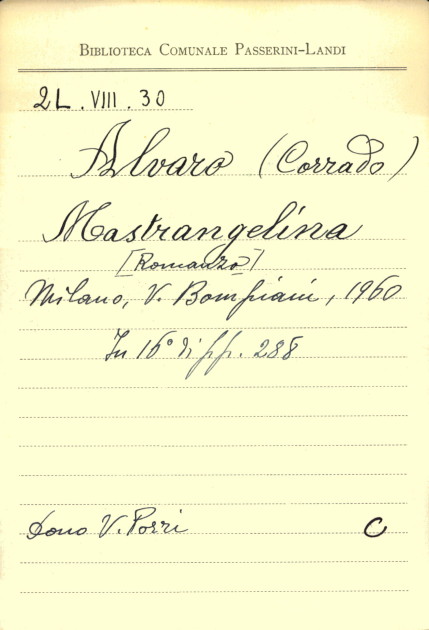 BIBLIOTECA COMUNALE PASSERINI-LANDI
2L. VIII. 30
Alvaro (Corrado)
Mastrangelina
[Romanzo]
Milano, V. Bompiani, 1960
In 16° di pp. 288
Dono V. Porri C